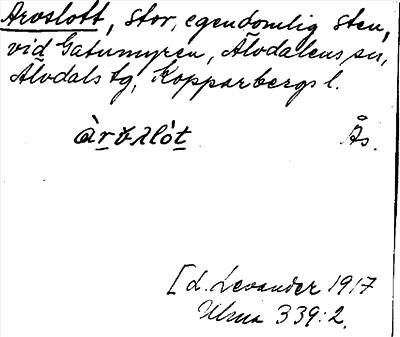 Arvslott, stor, egendomlig sten,
vid Gatumyren, Älvdalens sn,
Älvdals tg, Kopparbergs l.
Ås.
[L. Levander 1917
Ulma 339:2.